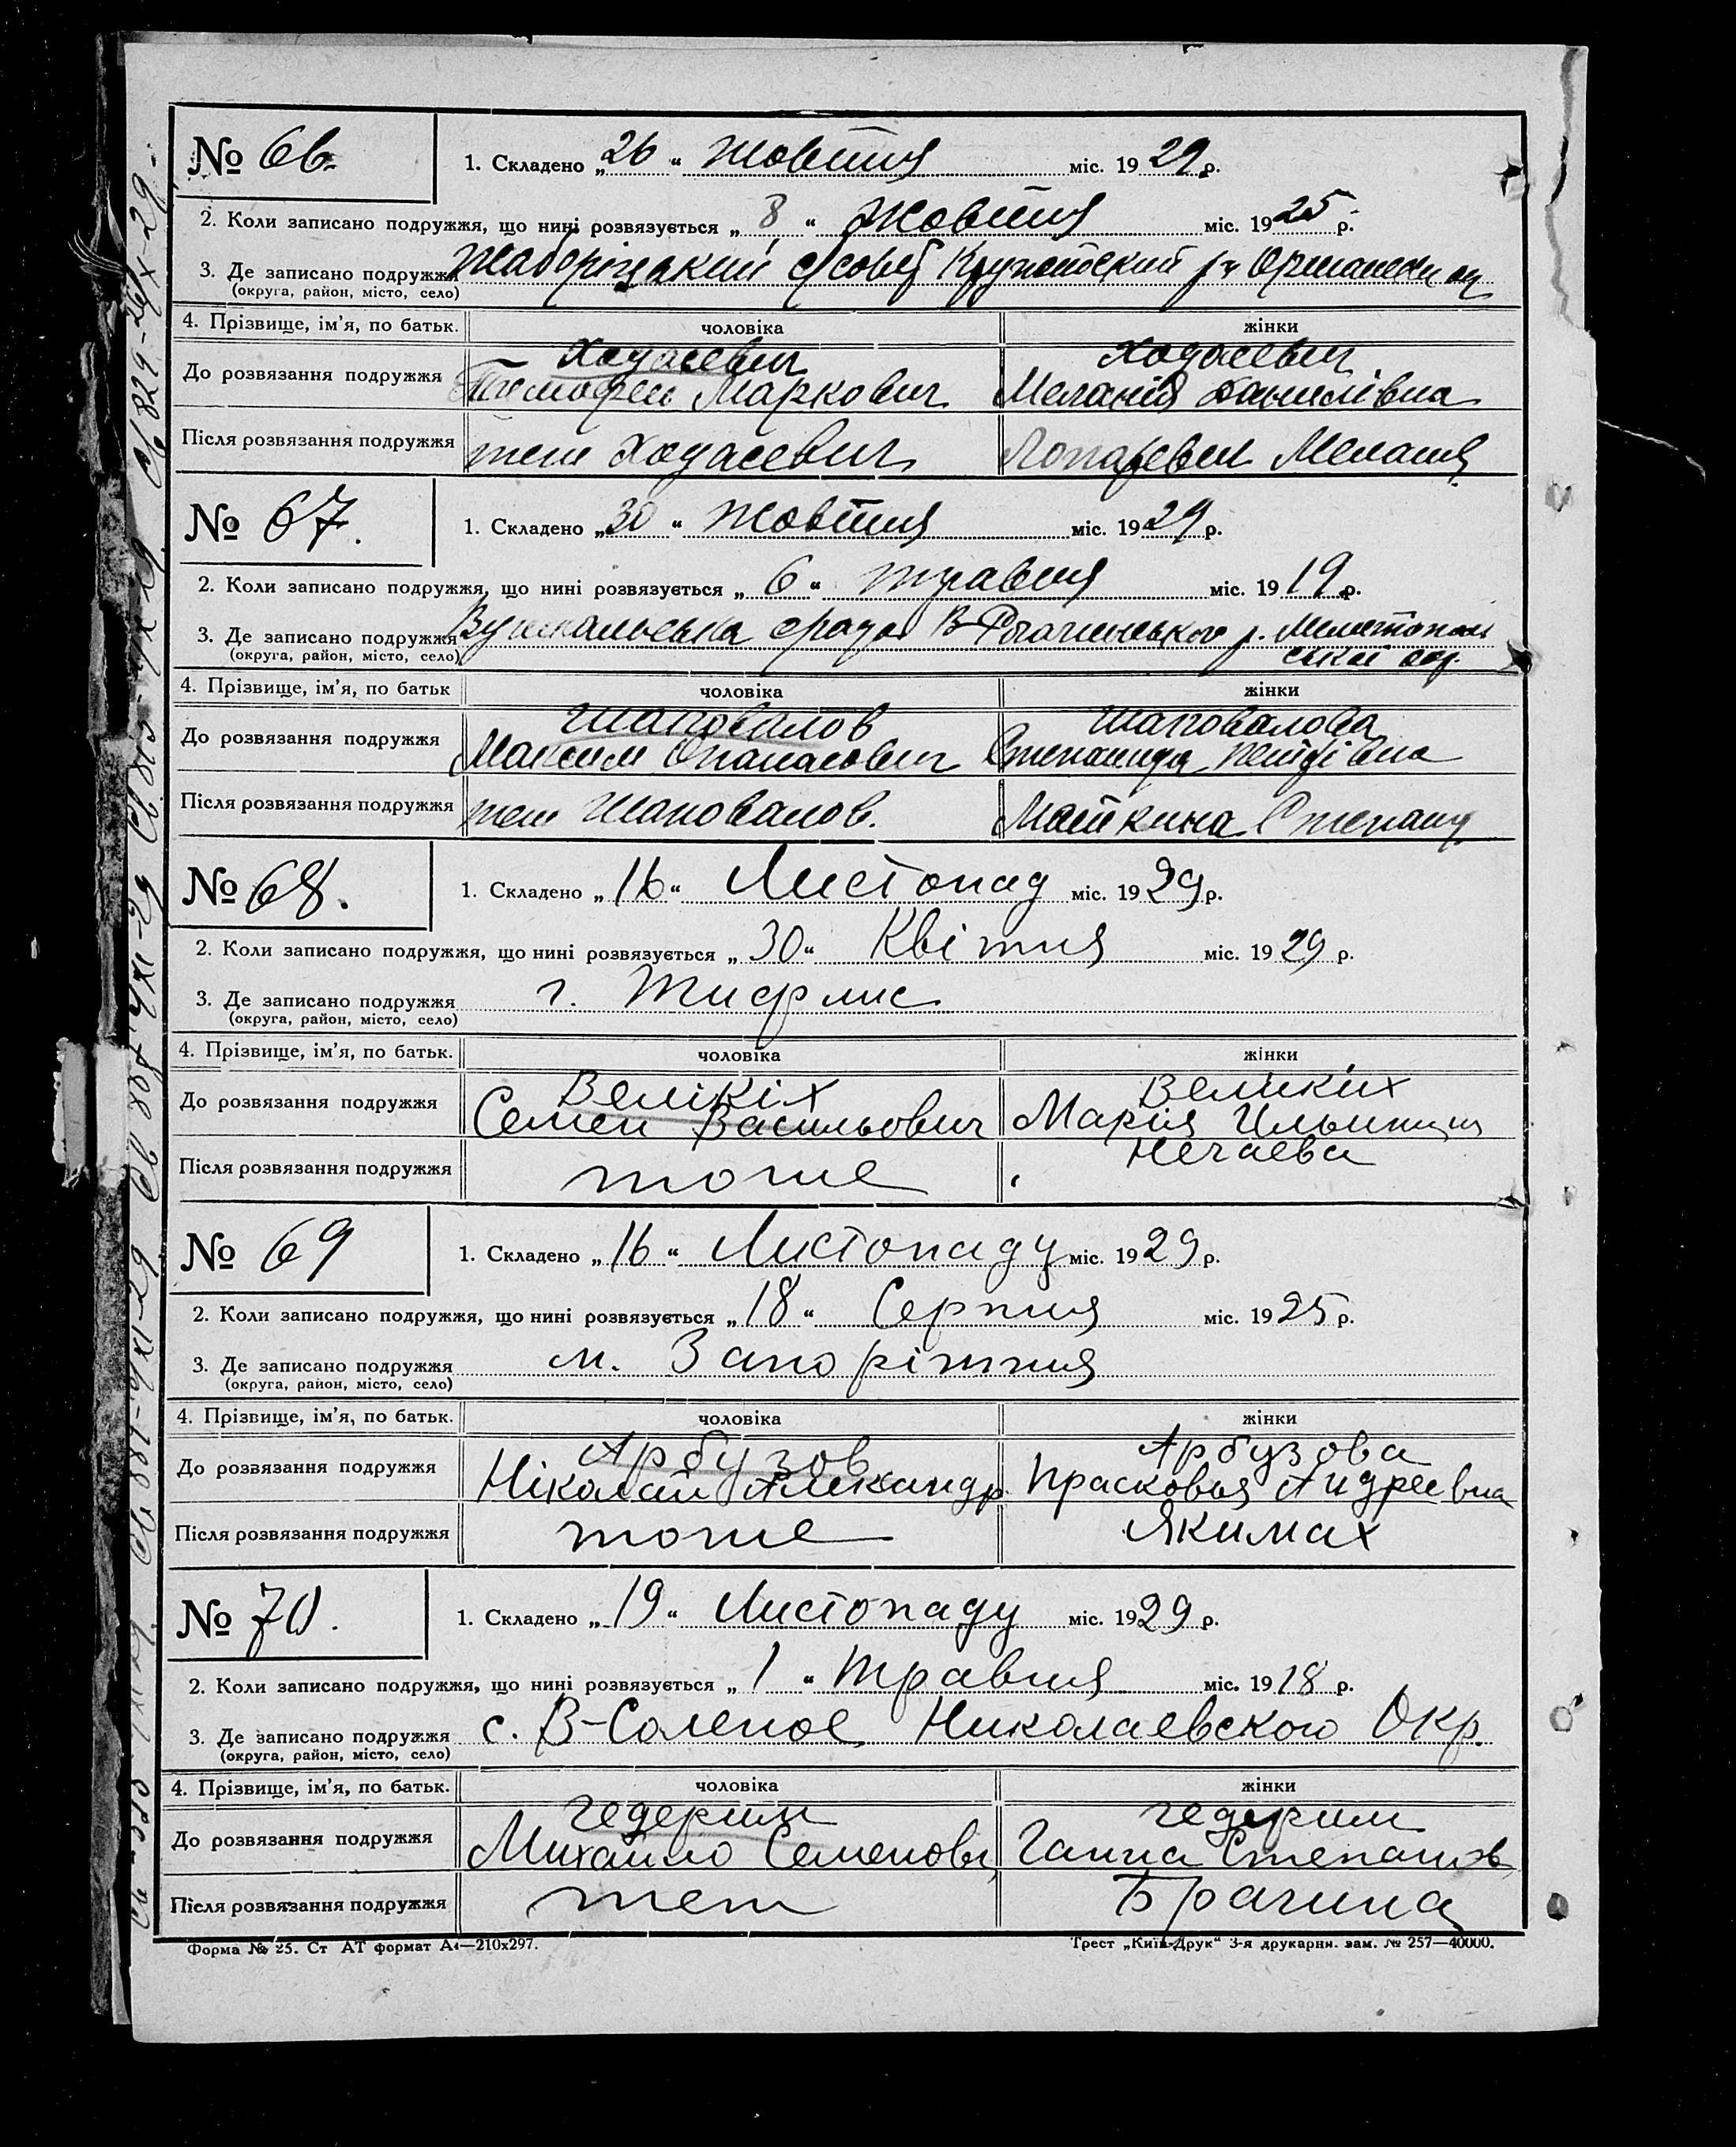 № 66. 1. Складено „26“ Жовтня міс. 1929 р.
2. Коли записано подружжя, що нині розвязується „8“ Жовтня міс. 1925 р.
3. Де записано подружжя с/совет р-н
(округа, район, місто, село)
4. Прізвище, ім’я, по батьк. чоловіка жінки
Ходасевич Ходасевич
До розвязання подружжя Тимофей Маркович Меланія Данилівна
Після розвязання подружжя теж Ходасевич Меланія
№ 67. 1. Складено „30“ Жовтня міс. 1929 р.
2. Коли записано подружжя, що нині розвязується „6“ травня міс. 1919 р.
3. Де записано подружжя срада В-Рогачинського р. Мелитополь
(округа, район, місто, село) ської окр.
4. Прізвище, ім’я, по батьк чоловіка жінки
Шаповалов Шаповалова
До розвязання подружжя Максим Опанасович Степанида
Після розвязання подружжя теж Шаповалов. Маткина Степанид
№ 68. 1. Складено „16“ Листопад міс. 1929 р.
2. Коли записано подружжя, що нині розвязується „30“ Квітня міс. 1929 р.
3. Де записано подружжя г. Тифлис
(округа, район, місто, село)
4. Прізвище, ім’я, по батьк. чоловіка жінки
Велікіх Великих
До розвязання подружжя Семен Васильович Марія
Після розвязання подружжя тоже Нечаева
№ 69 1. Складено „16“ Листопаду міс. 1929 р.
2. Коли записано подружжя, що нині розвязується „18“ Серпня міс. 1925 р.
3. Де записано подружжя м. Запоріжжя
(округа, район, місто, село)
4. Прізвище, ім’я, по батьк. чоловіка жінки
Арбузов Арбузова
До розвязання подружжя Ніколай Александр. Прасковья Андреевна
Після розвязання подружжя тоже Якимах
№ 70. 1. Складено „19“ Листопаду міс. 1929 р.
2. Коли записано подружжя, що нині розвязується „1“ травня міс. 1918 р.
3. Де записано подружжя с. В-Соленое Николаевского Окр.
(округа, район, місто, село)
4. Прізвище, ім’я, по батьк. чоловіка жінки
Гедерим Гедерим
До розвязання подружжя Михайло Семенови Ганна Степанов
Після розвязання подружжя теж Брагина
Форма № 25. Ст АТ формат А4—210х297. Трест „Київ-Друк“ 3-я друкарня. зам. № 257—40000.